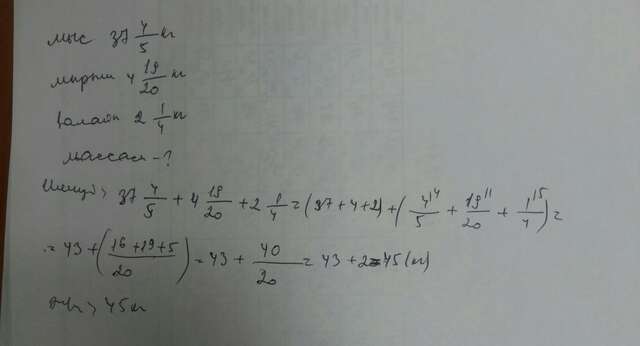 мыс 37 4/5 кг
мырыш 4 19/20 кг
қалайы 2 1/4 кг
массасы - ?
Шешуі: 37 4/5 + 4 19/20 + 2 1/4 = (37+4+2) + (4/5 ^14 + 19/20 ^11 + 1/4 ^15) =
= 43 + (16+19+5 / 20) = 43 + 40/20 = 43 + 2 = 45 (кг)
45 кг